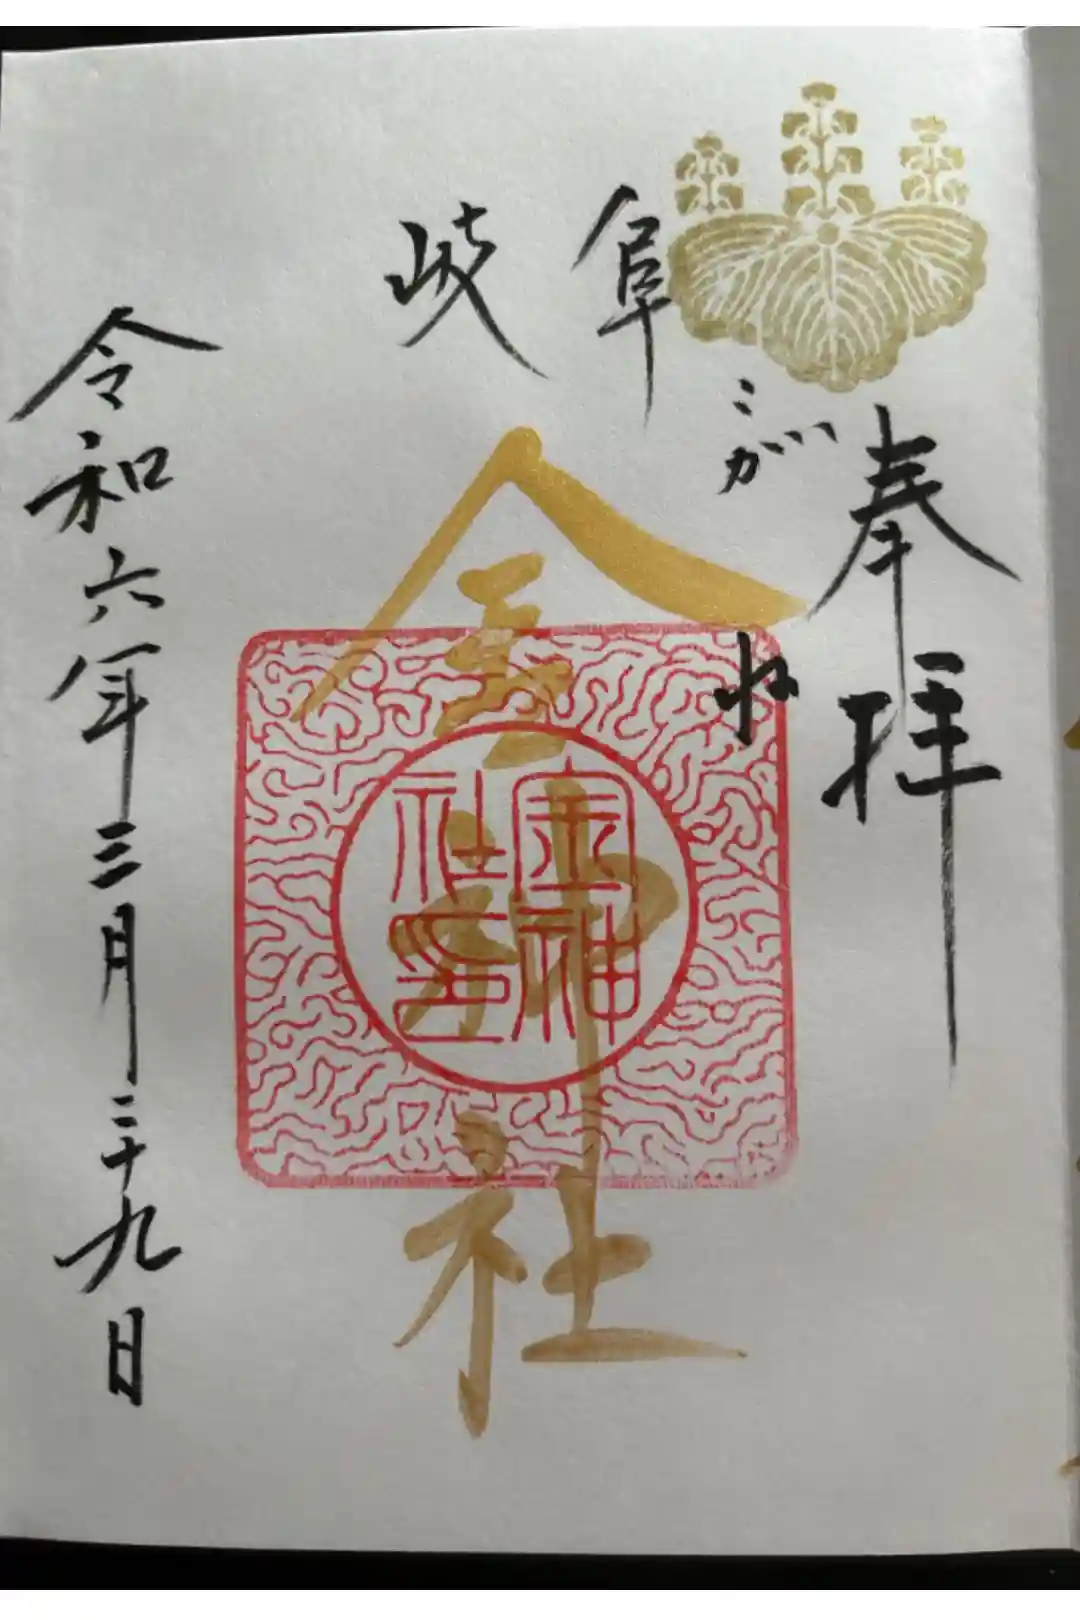 奉拝
岐阜
こがね
金神社
金神社印
令和六年三月二十九日